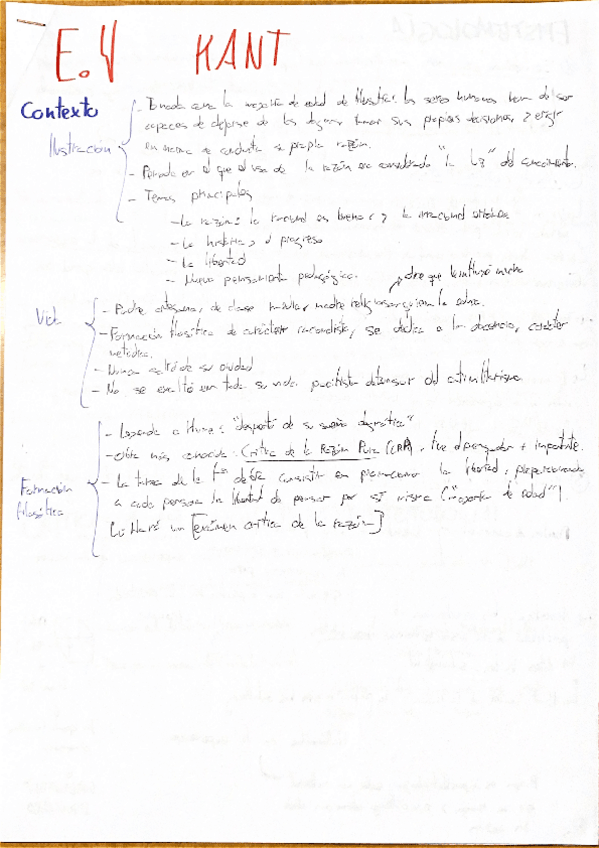 E.V KANT
Contexto
Ilustración
- Tomada como la mayoría de edad de filosofía. los seres humanos han de ser
capaces de dejarse de los dogmas tomar sus propias decisiones y erigir
en norma de conducta su propia razón.
- Periodo en el que el uso de la razón era considerado "la luz" del conocimiento.
- Temas principales
- La razón: lo racional es bueno y lo irracional
- La historia y el progreso
- La libertad
- Nuevo pensamiento pedagógico.
Vida
obra que le influyó mucho
- Padre artesano, de clase madre religiosa
- Formación filosófica de carácter racionalista, se dedica a la docencia, carácter
metódico.
- Nunca salió de su ciudad
- No se exaltó en toda su vida, pacifista defensor del antimilitarismo
Formación
filosófica
- Leyendo a Hume: "despertó de su sueño dogmático"
- Obra más conocida: Crítica de la Razón Pura (CRP), fue el pensador + importante.
- La tarea de la Fª debía consistir en la libertad, proporcionando
a cada persona la libertad de pensar por sí misma ("mayoría de edad").
un [exámen crítico de la razón]